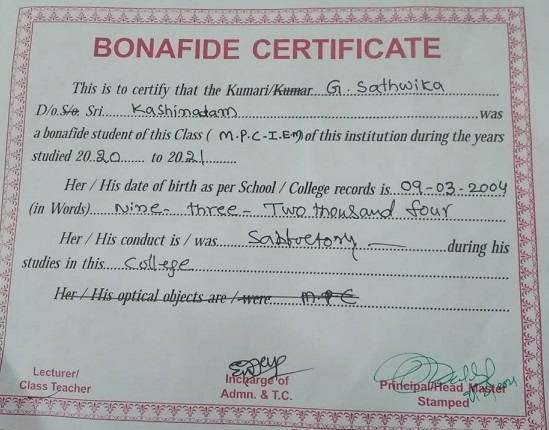 BONAFIDE CERTIFICATE
This is to certify that the Kumari/Kumar G. Sathwika
D/o.S/o. Sri. Kashinadam was
a bonafide student of this Class ( M.P.C-I.E.M) of this institution during the years
studied 2020 to 2021
Her / His date of birth as per School / College records is 09-03-2004
(in Words) Nine- three- Two thousand four
Her / His conduct is / was Sabfoctony during his
studies in this College
Her / His optical objects are / were M.P.C
Lecturer/
Class Teacher
Incharge of
Admn. & T.C.
Principal/Head Master
Stamped